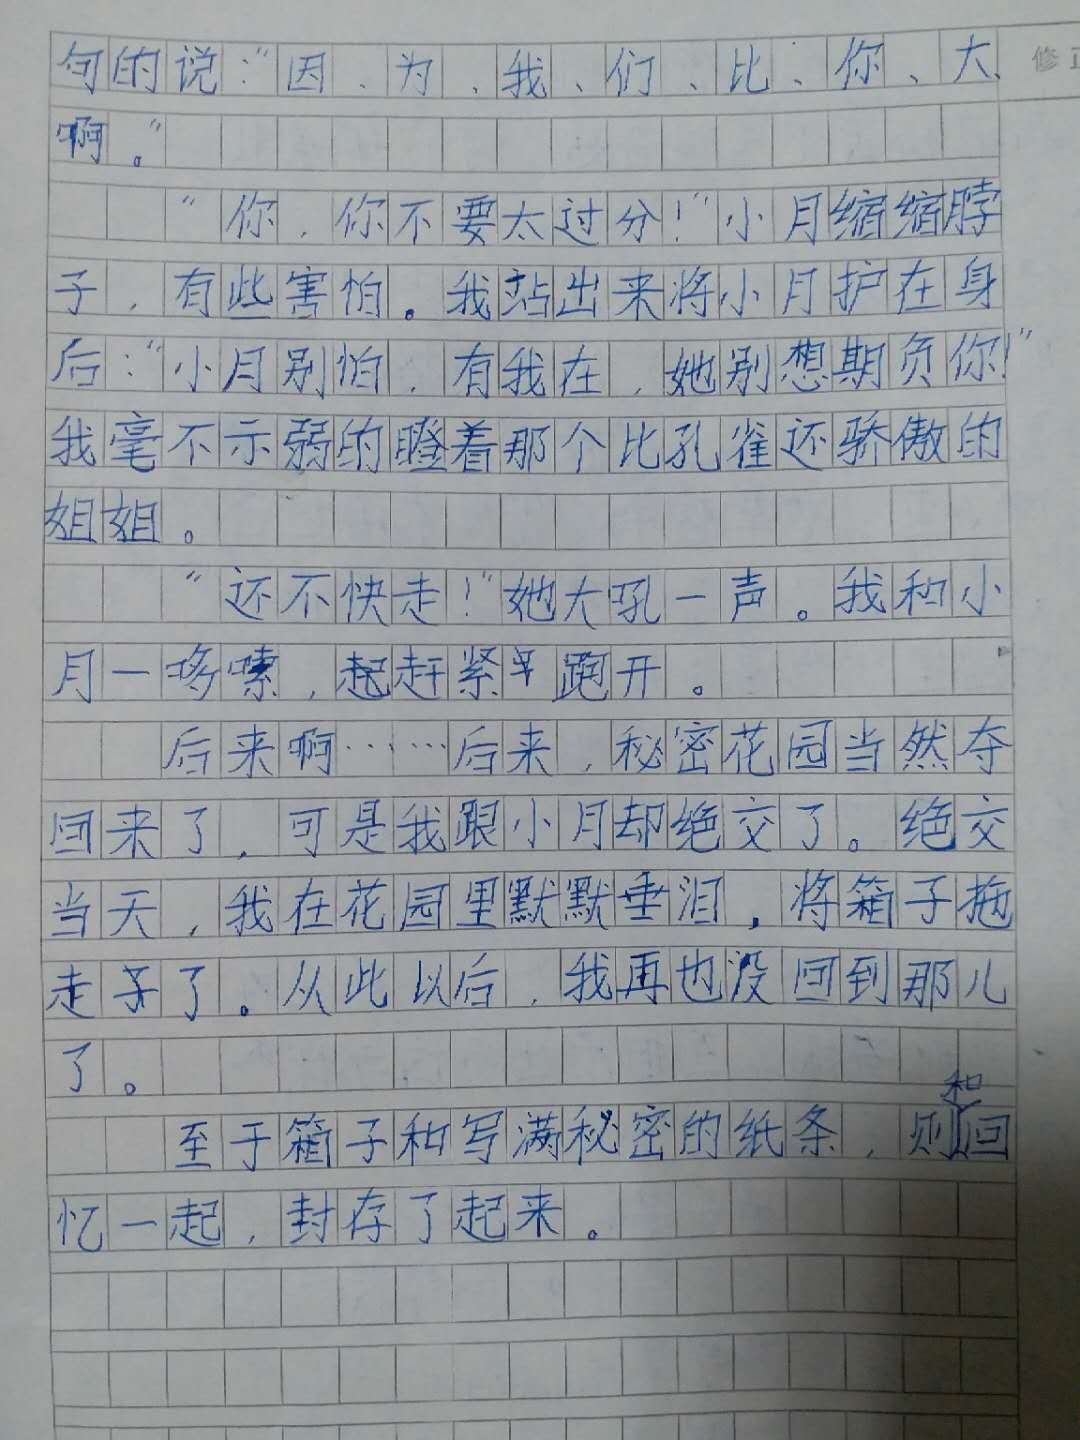 句的说：“因、为、我、们、比、你、大、
修正
啊。”
“你，你不要太过分！”小月缩缩脖
子，有些害怕。我站出来将小月护在身
后：“小月别怕，有我在，她别想期负你！”
我毫不示弱的瞪着那个比孔雀还骄傲的
姐姐。
“还不快走！”她大吼一声。我和小
月一哆嗦，起赶紧跑开。
后来啊……后来，秘密花园当然夺
回来了，可是我跟小月却绝交了。绝交
当天，我在花园里默默垂泪，将箱子拖
走了。从此以后，我再也没回到那儿
了。
至于箱子和写满秘密的纸条，则和回
忆一起，封存了起来。